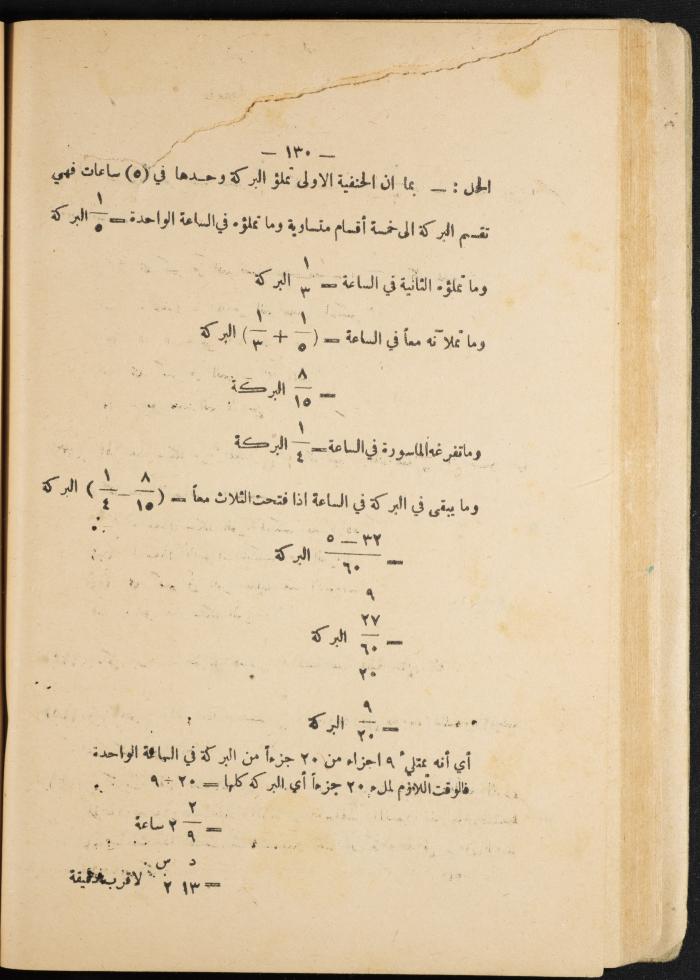 — ١٣٠ —
الحل : — بما ان الحنفية الاولى تملؤ البركة وحدها في (٥) ساعات فهي
تقسم البركة الى خمسة أقسام متساوية وما تملؤه في الساعة الواحدة = ١/٥ البركة
وما تملؤه الثانية في الساعة = ١/٣ البركة
وما تملآنه معاً في الساعة = (١/٥ + ١/٣) البركة
= ٨/١٥ البركة
وما تفرغه الماسورة في الساعة = ١/٤ البركة
وما يبقى في البركة في الساعة اذا فتحت الثلاث معاً = (٨/١٥ − ١/٤) البركة
= ٣٢ — ٥/٦٠ البركة
٩
= ٢٧/٦٠ البركة
٢٠
= ٩/٢٠ البركة
أي أنه يمتليء ٩ اجزاء من ٢٠ جزءاً من البركة في الساعة الواحدة
فالوقت اللازم لملء ٢٠ جزءاً أي البركة كلها = ٢٠ ÷ ٩
= ٢ ٢/٩ ساعة
د س
= ١٣ ٢ لاقرب دقيقة